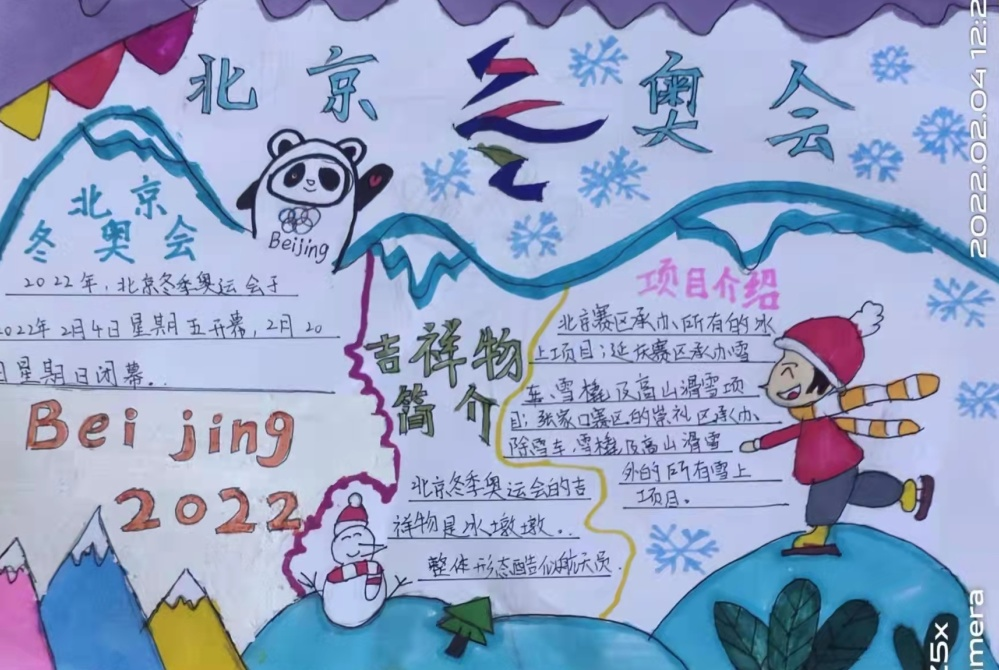 北京 奥会
北京
冬奥会
Beijing
2022年,北京冬季奥运会于
2022年2月4日星期五开幕,2月20
日星期日闭幕..
Bei jing
2022
吉祥物
简介
北京冬季奥运会的吉
祥物是冰墩墩..
整体形态酷似航天员.
项目介绍
北京赛区承办所有的冰
上项目;延庆赛区承办雪
车、雪橇及高山滑雪项
目;张家口赛区的崇礼区承办
除雪车、雪橇及高山滑雪
外的所有雪上
项目。
2022.02.04 12:2